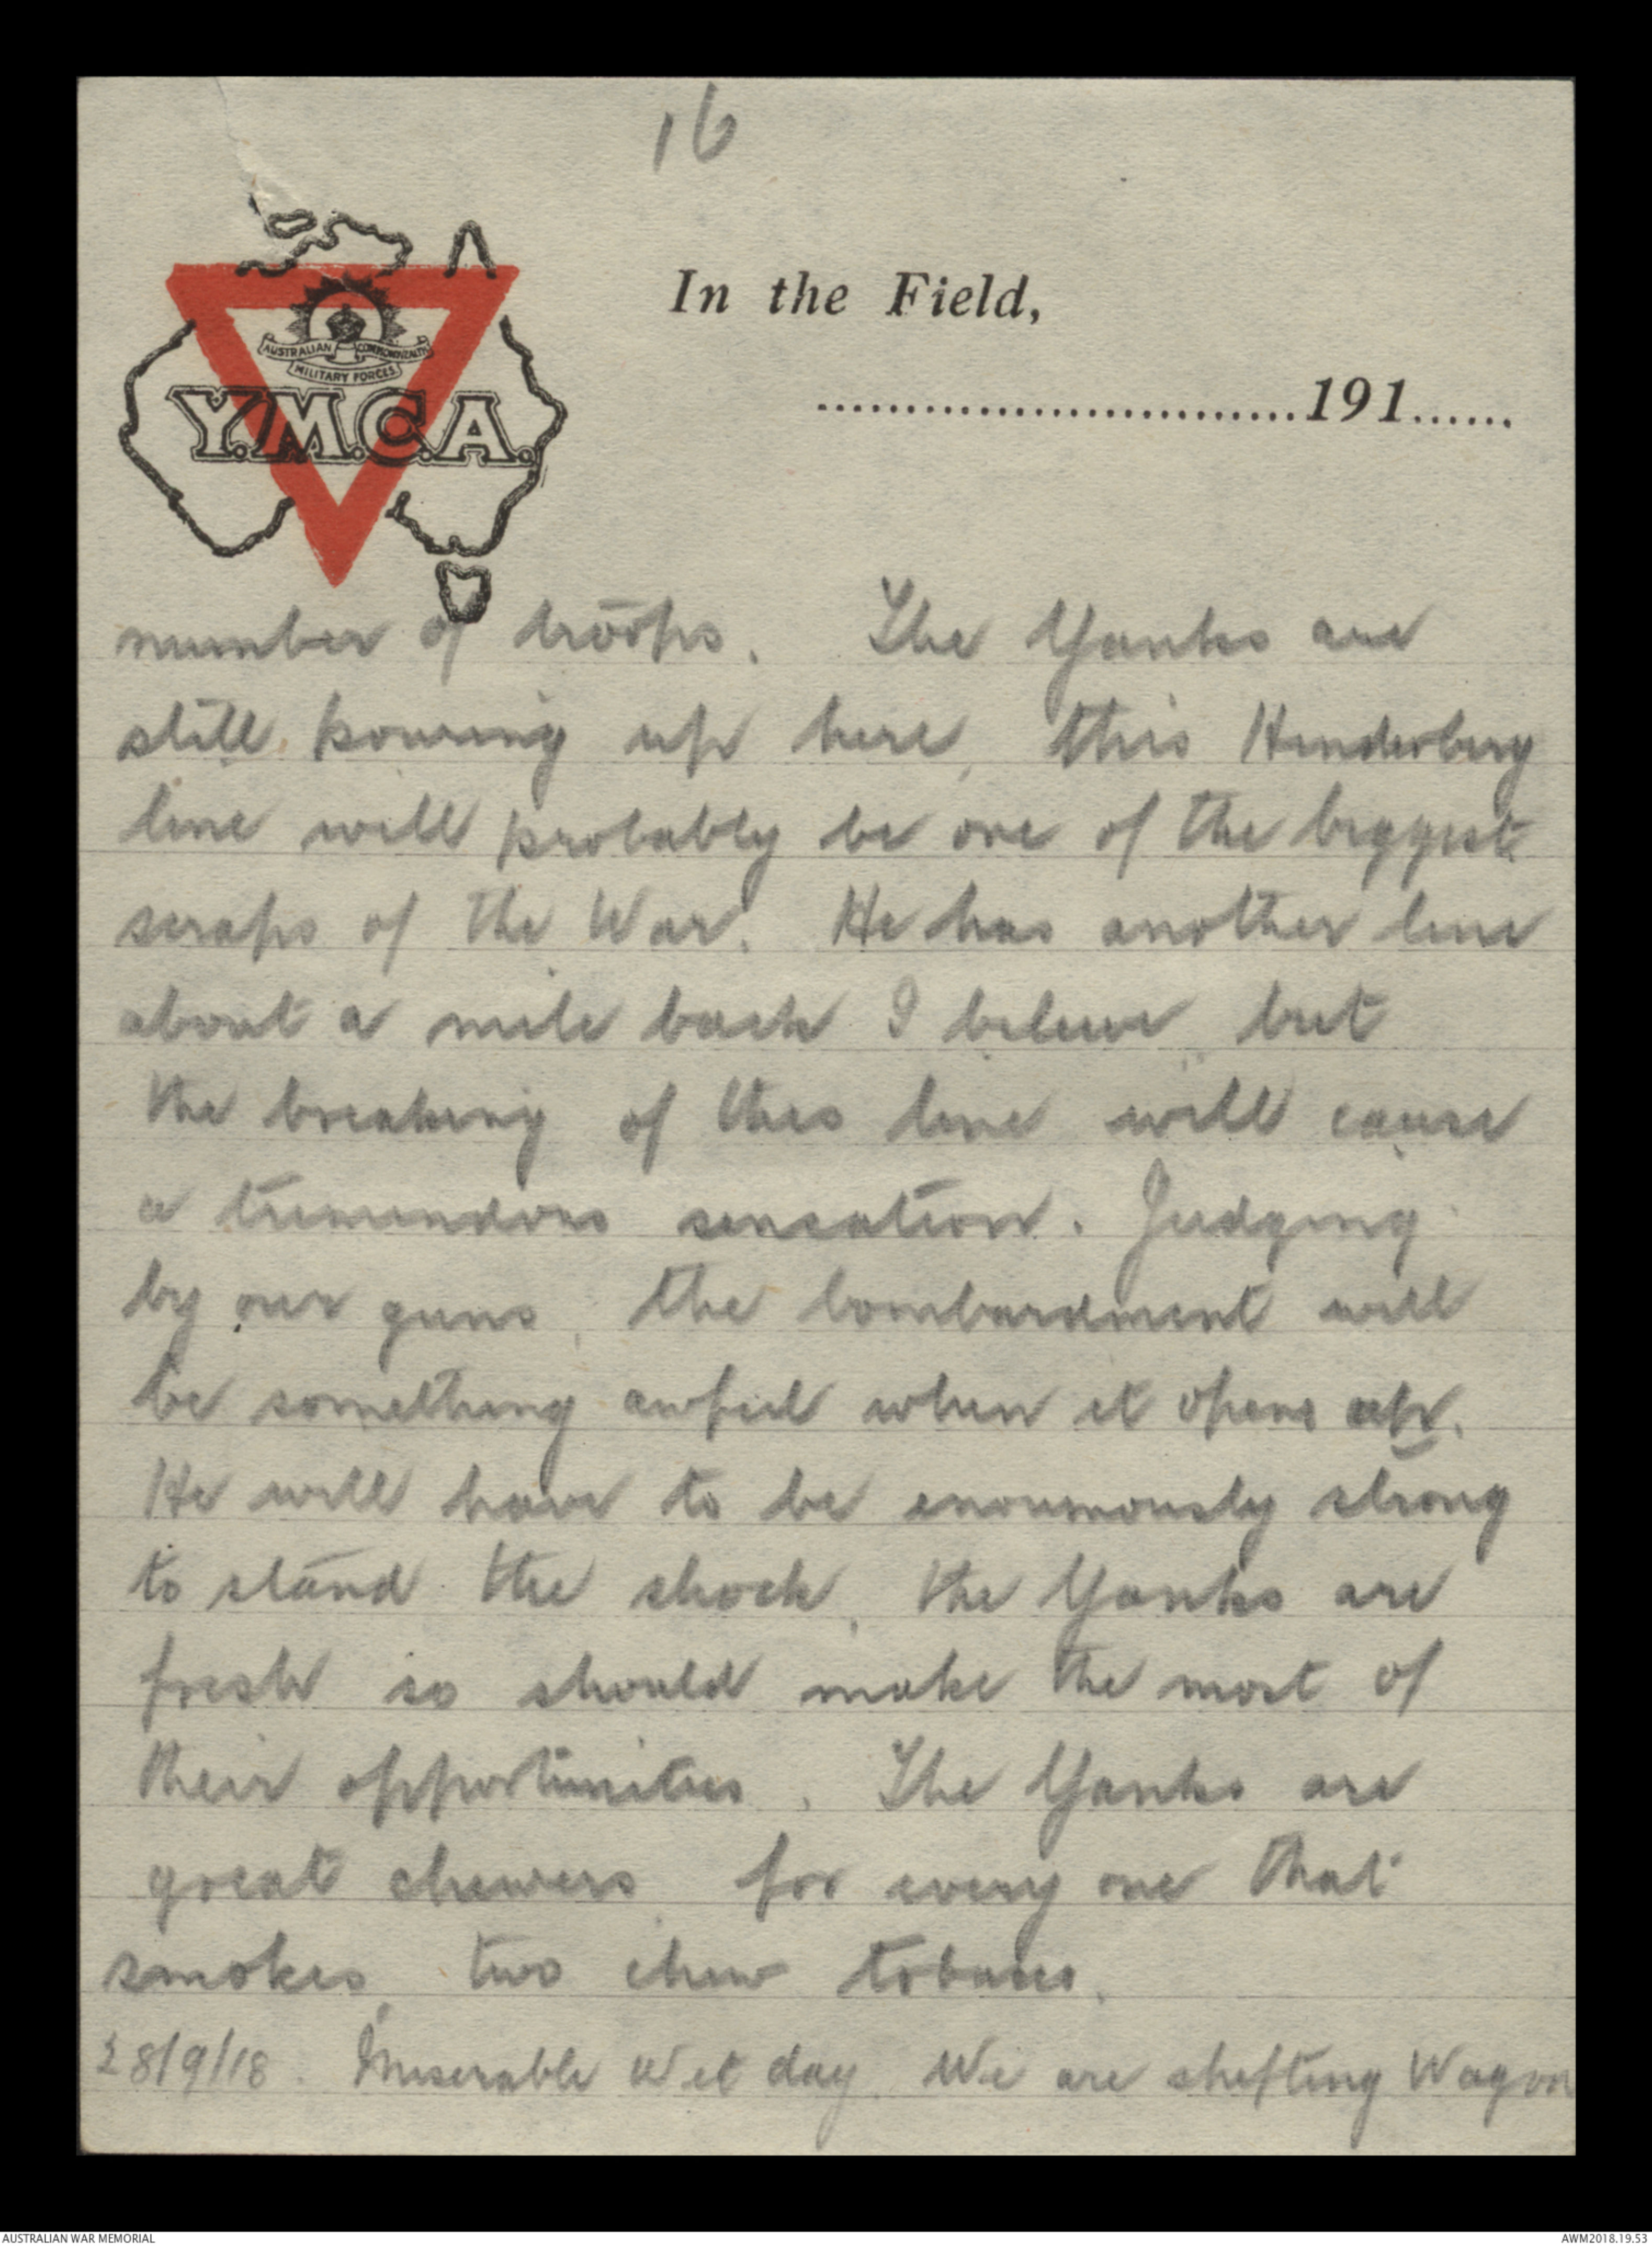 16
In the Field,
AUSTRALIAN COMMONWEALTH
MILITARY FORCES
Y.M.C.A.
............................191......
number of troops. The Yanks are
still pouring up here, this Hinderburg
line will probably be one of the biggest
scraps of the War. He has another line
about a mile back I believe, but
the breaking of this line will cause
a tremendous sensation. Judging
by our guns, the bombardment will
be something awful when it opens up.
He will have to be enoumously strong
to stand the shock, the Yanks are
fresh so should make the most of
their opportunities. The Yanks are
great chewers for every one that
smokes, two chew tobacco.
28/9/18. Miserable Wet day. We are shifting Wagon
AUSTRALIAN WAR MEMORIAL
AWM2018.19.53